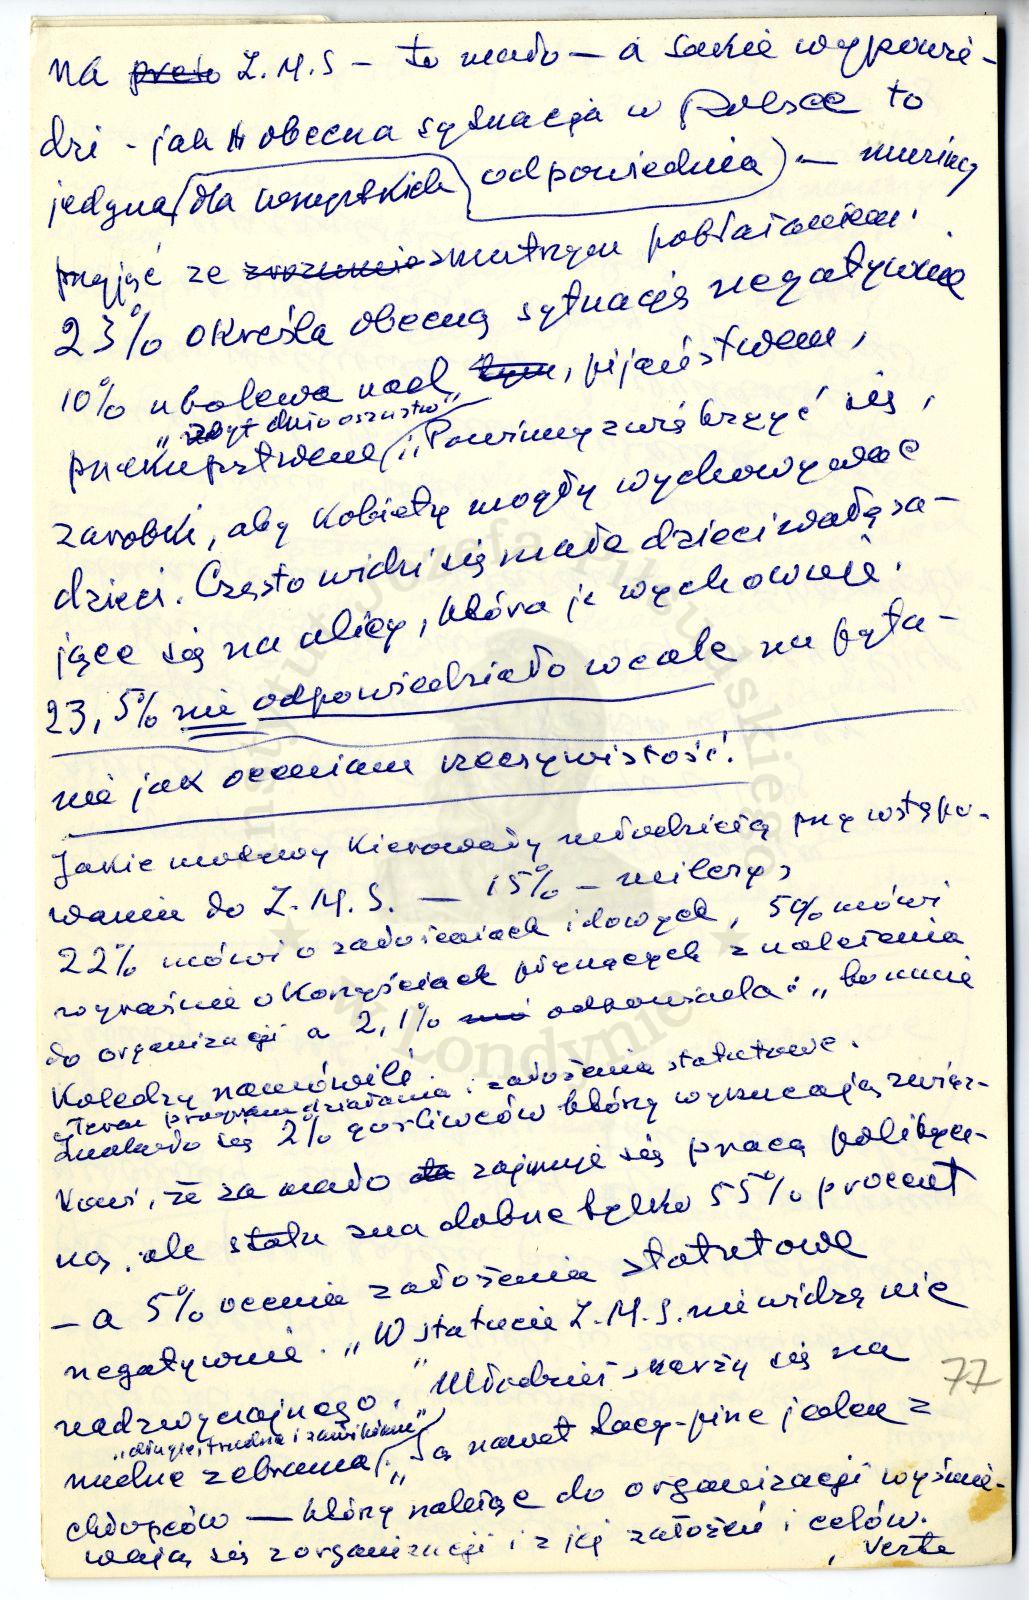 na preso Z.M.S - to mało - a takie wypowie-
dzi - jak obecna sytuacja w Polsce to
jedyna (dla wszystkich) odpowiednia) - musimy
przyjąć ze zrozumie smutnym pobłażaniem.
23% określa obecną sytuację negatywnie
10% ubolewa nad tym, pijaństwem,
"zbyt dużo oszustw"
przekupstwem, "Powinny zwiększyć się,
zarobki, aby kobiety mogły wychowywać
dzieci. Często widzi się małe dzieci wałęsa-
jące się na ulicy, która je wychowuje.
23,5% nie odpowiedziało wcale na pyta-
nie jak oceniam rzeczywistość.
Jakie motywy kierowały młodzieżą przy wstępo-
waniu do Z.M.S. - 15% - milczy,
22% mówi o założeniach ideowych, 5% mówi
wyraźnie o korzyściach płynących z należenia
do organizacji a 2,1% odpowiada: "bo mnie
koledzy namówili.
Teraz program działania i założenia statutowe.
Znalazło się 2% gorliwców którzy wyrzucają związ-
kowi, że za mało zajmuje się pracą politycz-
ną, ale statu zna dobrze tylko 55% procent
- a 5% ocenia założenia statutowe
negatywnie. "W statucie Z.M.S. nie widzę nic
nadzwyczajnego." Młodzież skarży się na
"długie, trudne i zawikłane"
nudne zebrania, "Są nawet tacy - pisze jeden z
chłopców - którzy należąc do organizacji wyśmie-
wają się z organizacji i z jej założeń i celów.
verte
77
Instytut Józefa Piłsudskiego
w Londynie